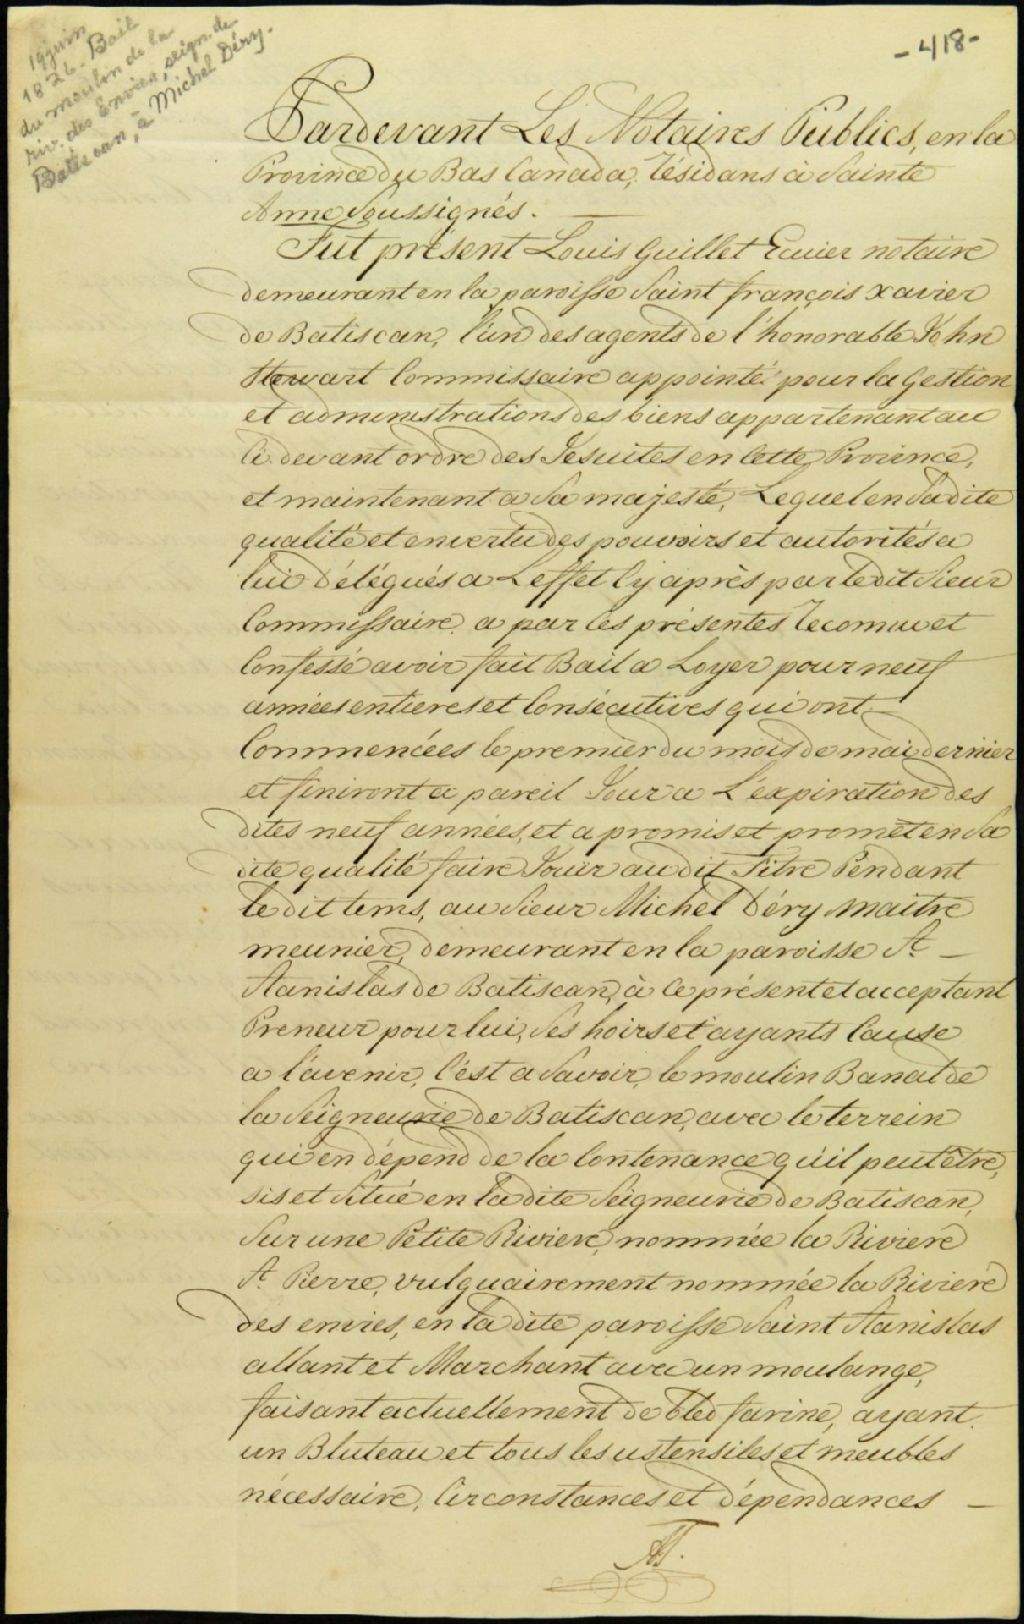 19 juin
1826 - Bail
du moulin de la
riv. des Envies, seign. de
Batiscan, à Michel Déry.
- 418 -
Pardevant Les Notaires Publics, en la
Province du Bas Canada, résidans à Sainte
Anne Soussignés.
Fut présent Louis Guillet Ecuier notaire
demeurant en la paroisse Saint françois xavier
de Batiscan, l'un des agents de l'honorable John
Stewart Commissaire appointé pour la Gestion
et administrations des biens appartenant au
Ci devant ordre des Jesuites en Cette Province,
et maintenant a Sa majesté, Lequel en Sa dite
qualité et en vertu des pouvoirs et autorités a
lui délégués a L'effet Cy après par le dit Sieur
Commissaire a par les présentes reconnu et
Confessé avoir fait Bail a Loyer pour neuf
années entieres et Consécutives qui ont
Commencées le premier du mois de mai dernier
et finiront a pareil Jour a L'éxpiration des
dites neuf années, et a promis et promet en Sa
dite qualité faire Jouir au dit Titre Pendant
le dit tems, au Sieur Michel Déry Maitre
meunier, demeurant en la paroisse St
Stanislas de Batiscan, à Ce présent et acceptant
Preneur pour lui, Ses hoirs et ayants Cause
a l'avenir, C'est a Savoir, le moulin Banal de
la Seigneurie de Batiscan, avec le terrein
qui en dépend de la Contenance qu'il peut être,
sis et Situé en la dite Seigneurie de Batiscan,
Sur une Petite Riviere, nommée la Riviere
St Pierre, vulguairement nommée la Riviere
des envies, en la dite paroisse Saint Stanislas
allant et Marchant avec un moulange,
faisant actuellement de bled farine, ayant
un Bluteau et tous les ustensiles et meubles
nécessaire, Circonstances et dépendances